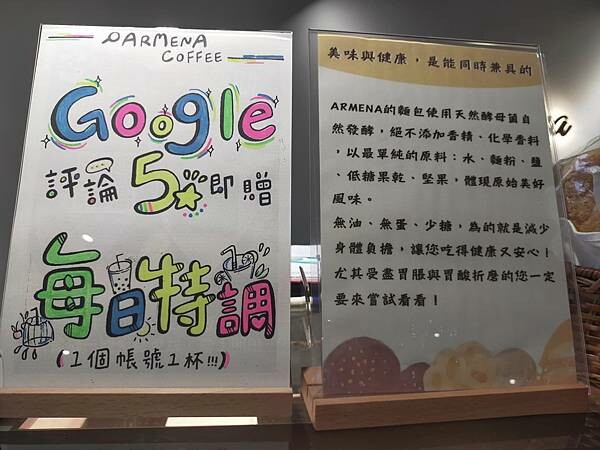 ARMENA
COFFEE
Google
評論5☆即贈
每日特調
(1個帳號1杯!!!)
美味與健康，是能同時兼具的
ARMENA的麵包使用天然酵母菌自
然發酵，絕不添加香精、化學香料
，以最單純的原料：水、麵粉、鹽
、低糖果乾、堅果，體現原始美好
風味。
無油、無蛋、少糖，為的就是減少
身體負擔，讓您吃得健康又安心！
尤其受盡胃脹與胃酸折磨的您一定
要來嘗試看看！